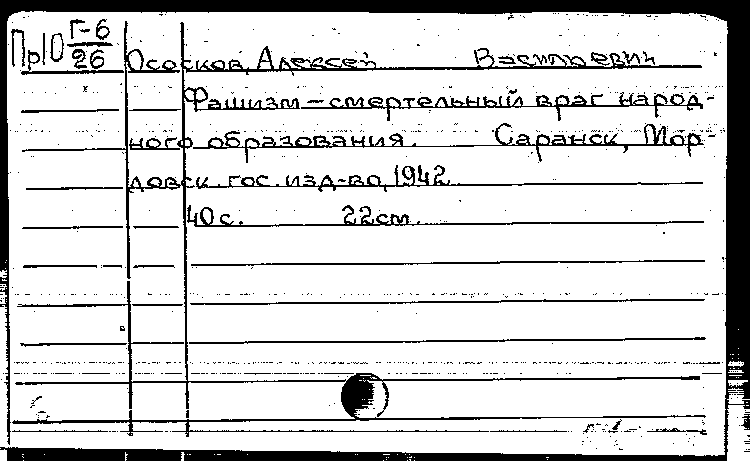 Пр10 Г-6
26
Ососков, Алексей Васильевич
Фашизм – смертельный враг народ-
ного образования. Саранск, Мор-
довск. гос. изд-во, 1942
40 с. 22 см.